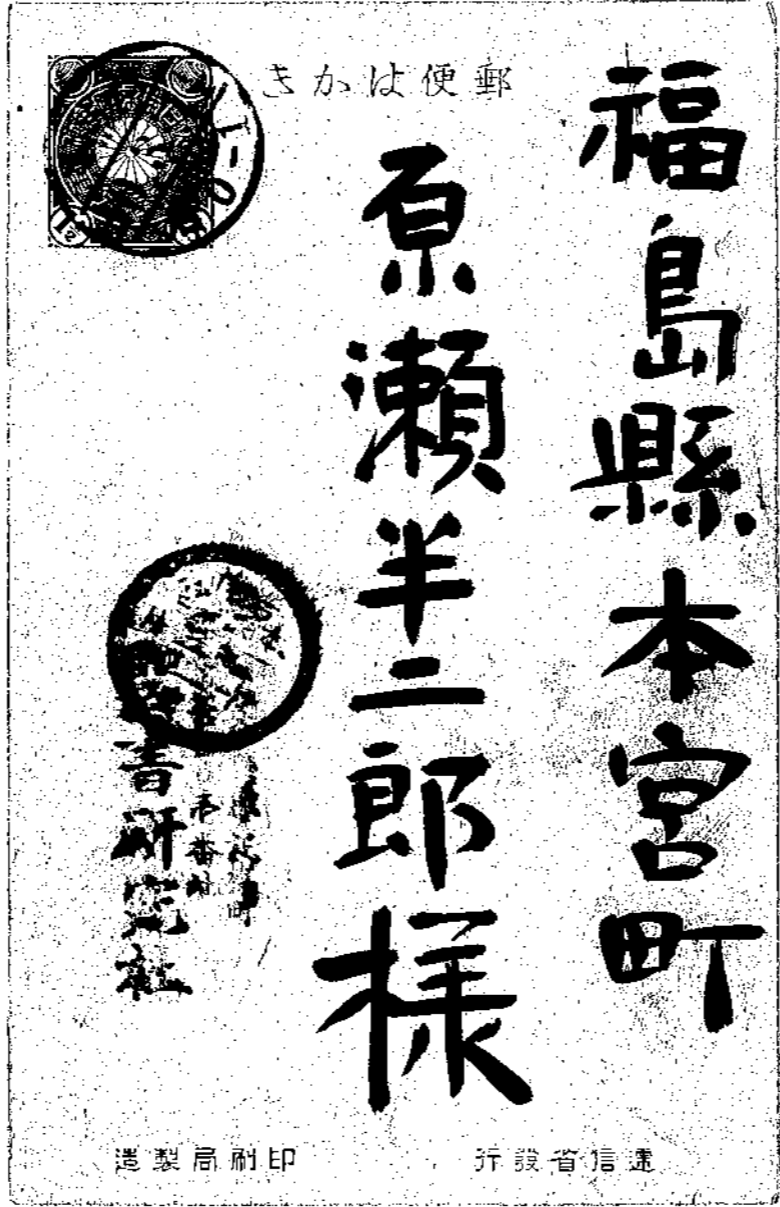 郵便はかき
福島縣本宮町
原瀬半二郎様
書研究社
逓信省發行
印刷局製造